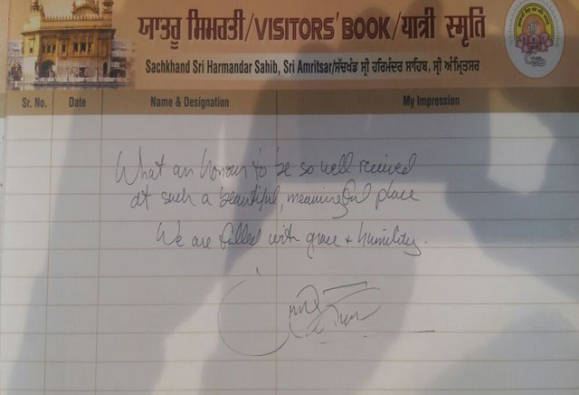 ਯਾਤਰੂ ਸਿਮਰਤੀ/VISITORS' BOOK/यात्री स्मृति
Sachkhand Sri Harmandar Sahib, Sri Amritsar/ਸੱਚਖੰਡ ਸ੍ਰੀ ਹਰਿਮੰਦਰ ਸਾਹਿਬ, ਸ੍ਰੀ ਅੰਮ੍ਰਿਤਸਰ
Sr. No. Date Name & Designation My Impression
What an honour to be so well received
at such a beautiful, meaningful place
We are filled with grace + humility.